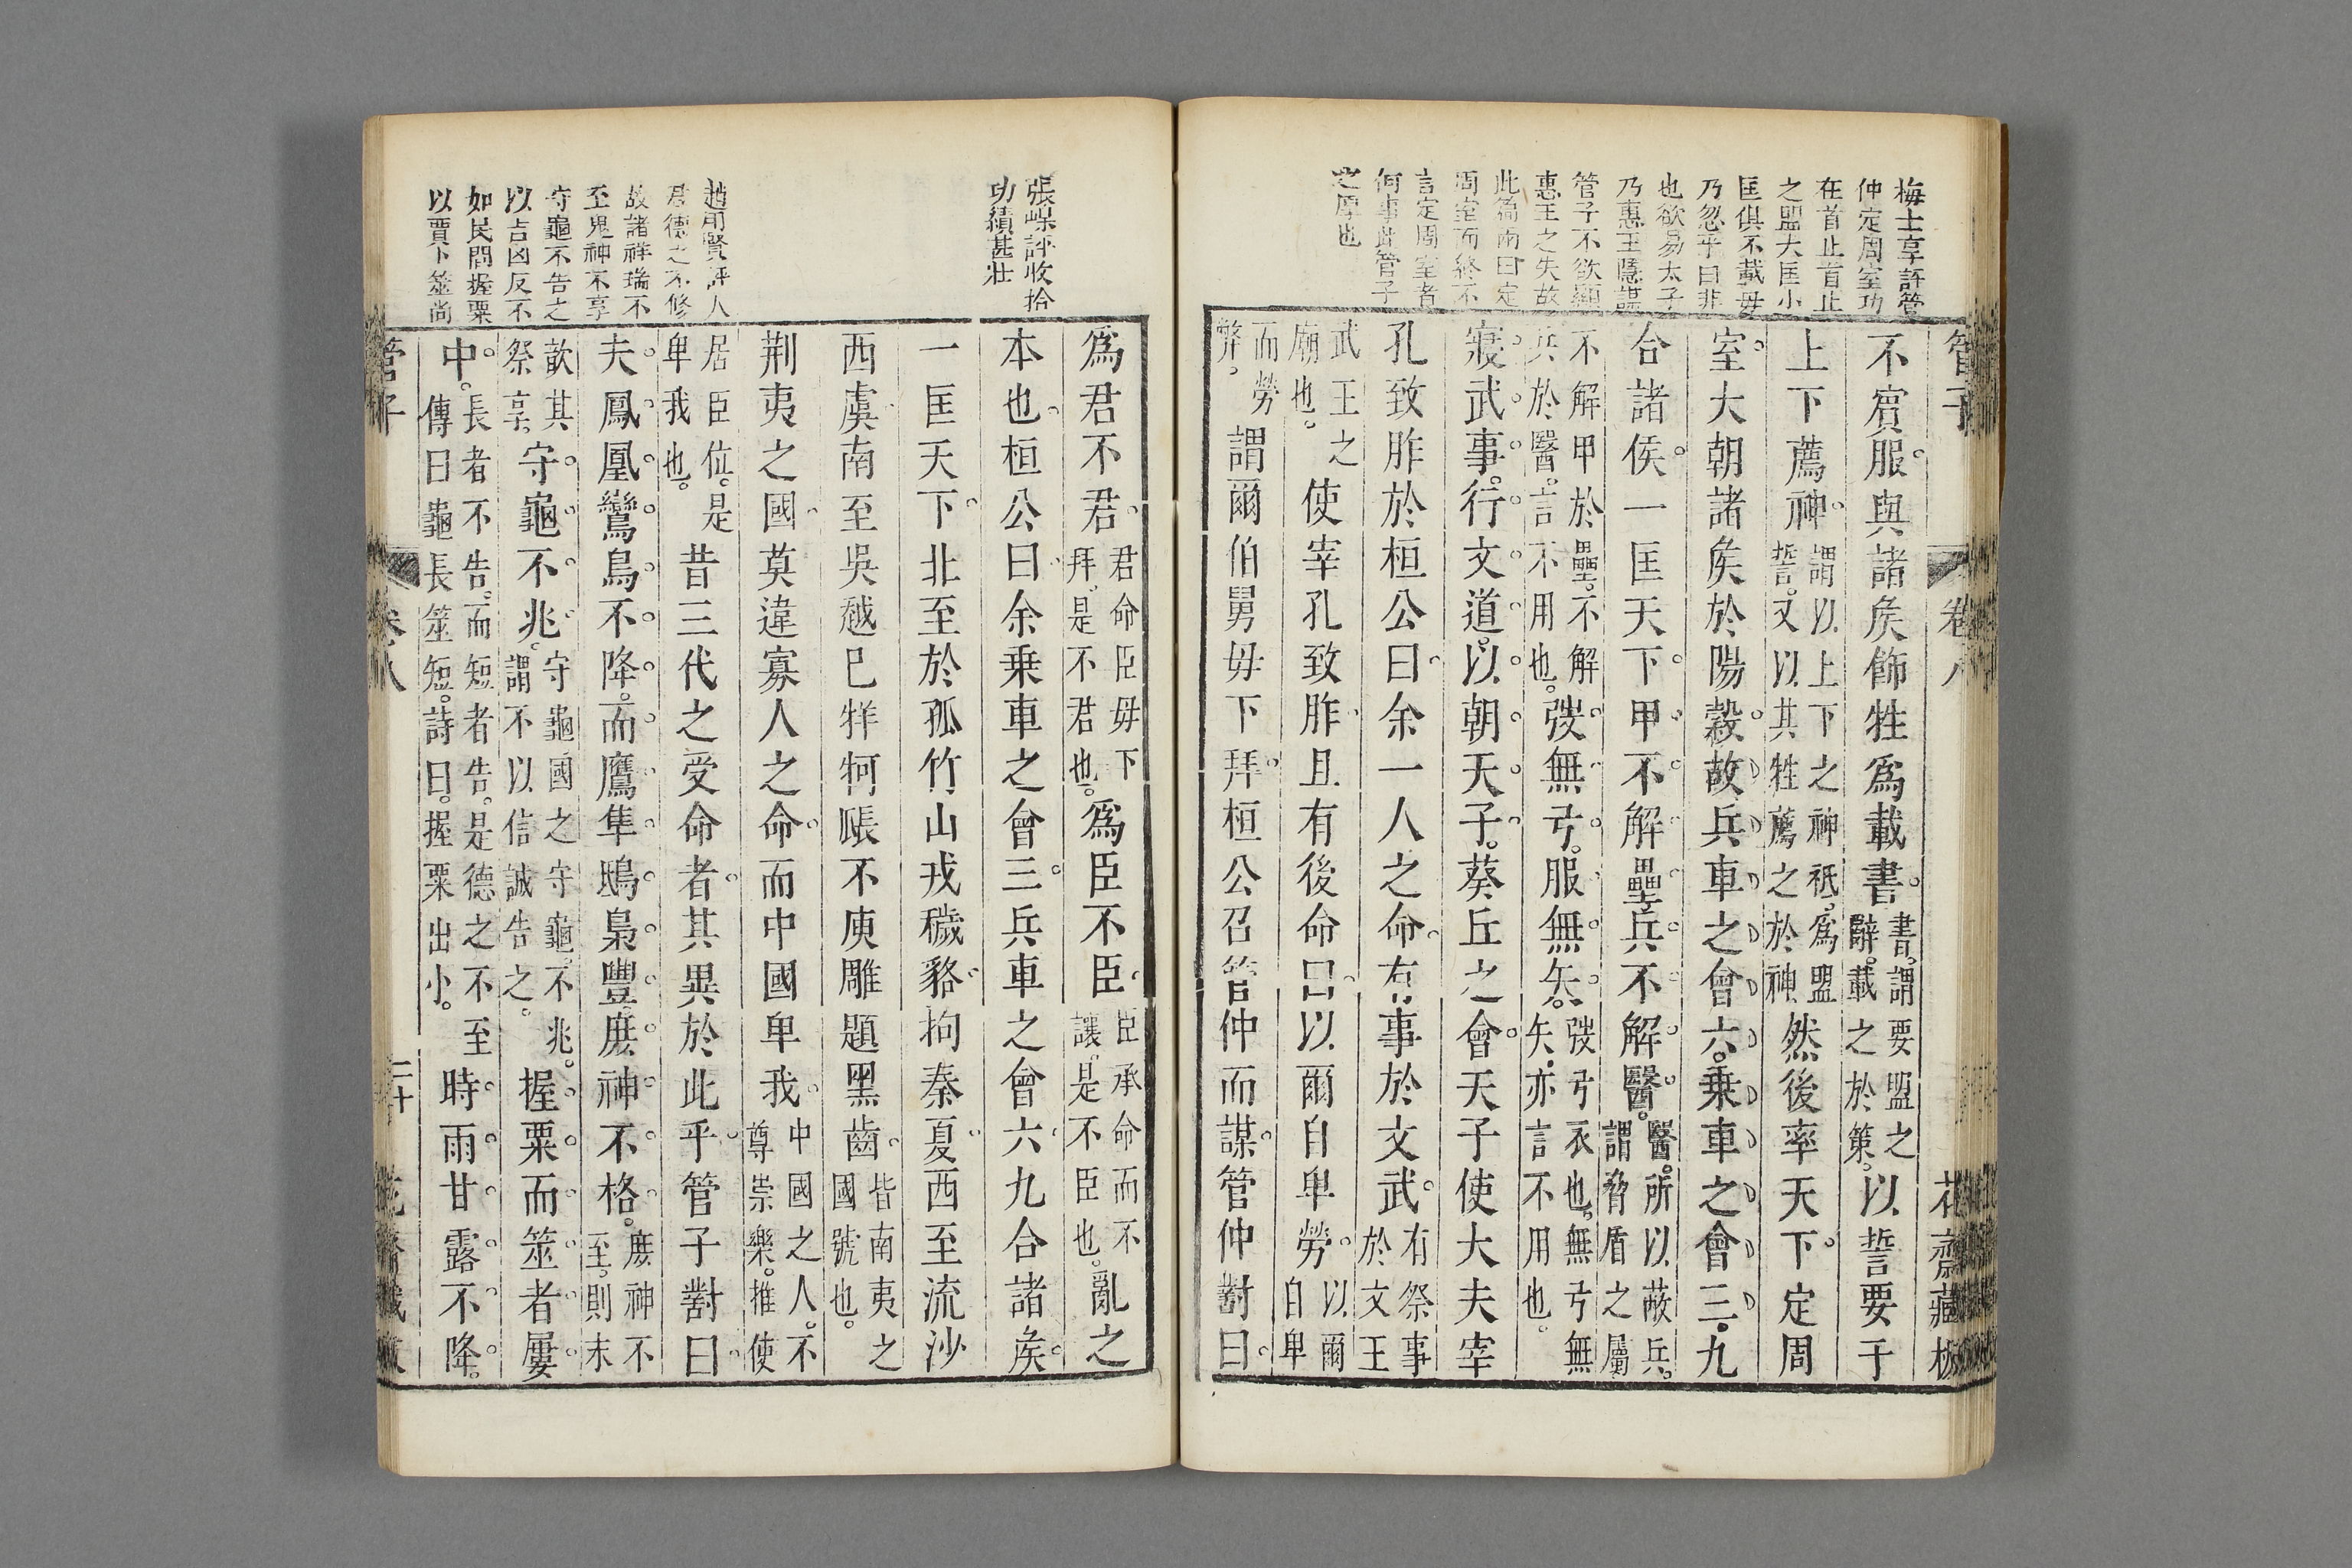 管子
卷八
花齋藏板
梅士享評管
仲定周室功
在首止首止
之盟大匡小
匡俱不載毋
乃忽乎曰非
也欲易太子
乃惠王隱謀
管子不欲顯
惠王之失故
此篇兩曰定
周室而終不
言定周室者
何事此管子
之厚也
不賓服與諸矦飾牲爲載書書謂要盟之辭載之於策以誓要于
上下薦神謂以上下之神祇爲盟誓又以其牲薦之於神然後率天下定周
室大朝諸矦於陽穀故兵車之會六乗車之會三九
合諸侯一匡天下甲不解壘兵不解醫醫所以蔽兵謂脅盾之屬
不解甲於壘不解兵於醫言不用也弢無弓服無矢弢弓衣也無弓無矢亦言不用也
寢武事行文道以朝天子葵丘之會天子使大夫宰
孔致胙於桓公曰余一人之命有事於文武有祭事於文王
武王之廟也使宰孔致胙且有後命曰以爾自卑勞以爾自卑
而勞弊謂爾伯舅毋下拜桓公召管仲而謀管仲對曰
張嵲評收拾
功績甚壯
趙用賢評人
君德之不修
故諸祥瑞不
至鬼神不享
守龜不告之
以吉凶反不
如民間握粟
以買卜筮尚
爲君不君君命臣毋下拜是不君也爲臣不臣臣承命而不讓是不臣也亂之
本也桓公曰余乗車之會三兵車之會六九合諸矦
一匡天下北至於孤竹山戎穢貉拘秦夏西至流沙
西虞南至吳越巴牂牁䝘不庾雕題黑齒皆南夷之國號也
荆夷之國莫違寡人之命而中國卑我中國之人不尊崇樂推使
居臣位是卑我也昔三代之受命者其異於此乎管子對曰
夫鳳凰鸞鳥不降而鷹隼鴟梟豐庶神不格庶神不至則未
歆其祭享守龜不兆守龜國之守龜不兆謂不以信誠告之握粟而筮者屢
中長者不告而短者告是德之不至傳曰龜長筮短詩曰握粟出小時雨甘露不降
管子
卷八
二十
花齋藏板